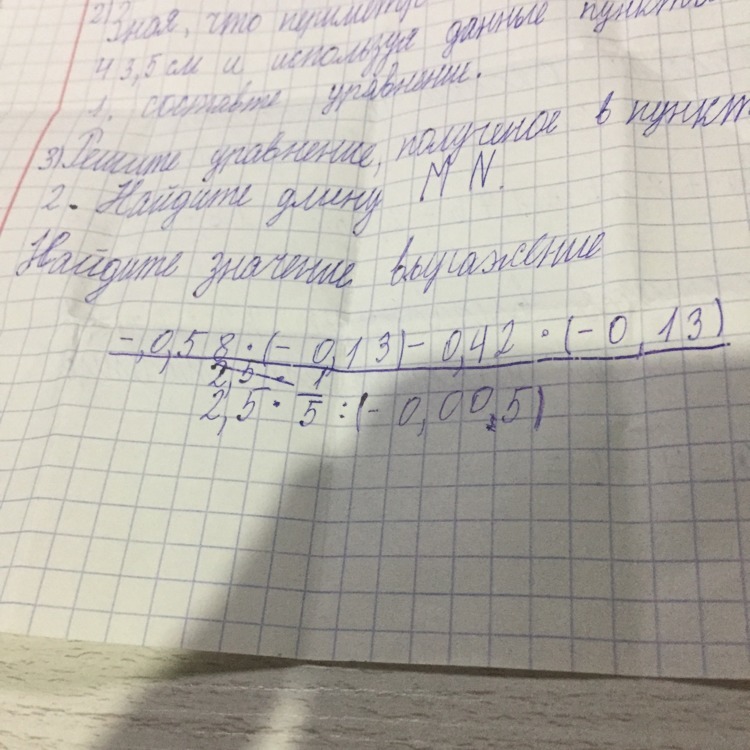 2)Зная, что периметр
43,5 см и используя данные пункта
1. составте уравнение.
3) Решите уравнение, полученое в пункт
2. Найдите длину MN.
Найдите значение выражение
-0,58·(-0,13)-0,42·(-0,13)
2,5·1/5:(-0,005)